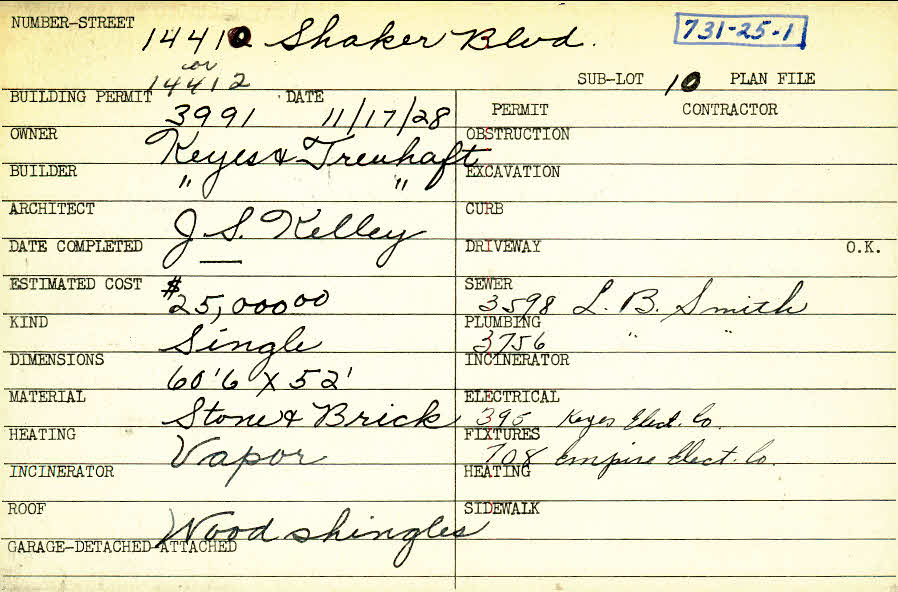 NUMBER-STREET 14410 Shaker Blvd. 731-25-1
or
14412 SUB-LOT 10 PLAN FILE
BUILDING PERMIT 3991 DATE 11/17/28 PERMIT CONTRACTOR
OWNER Keyes & Treuhaft OBSTRUCTION
BUILDER " " EXCAVATION
ARCHITECT J. S. Kelley CURB
DATE COMPLETED — DRIVEWAY O.K.
ESTIMATED COST $25,000 00 SEWER 3598 L. B. Smith
KIND Single PLUMBING 3756 " "
DIMENSIONS 60'6 x 52' INCINERATOR
MATERIAL Stone & Brick ELECTRICAL 395 Keyes Elect. Co.
HEATING Vapor FIXTURES 708 Empire Elect. Co.
INCINERATOR HEATING
ROOF Wood shingles SIDEWALK
GARAGE-DETACHED-ATTACHED